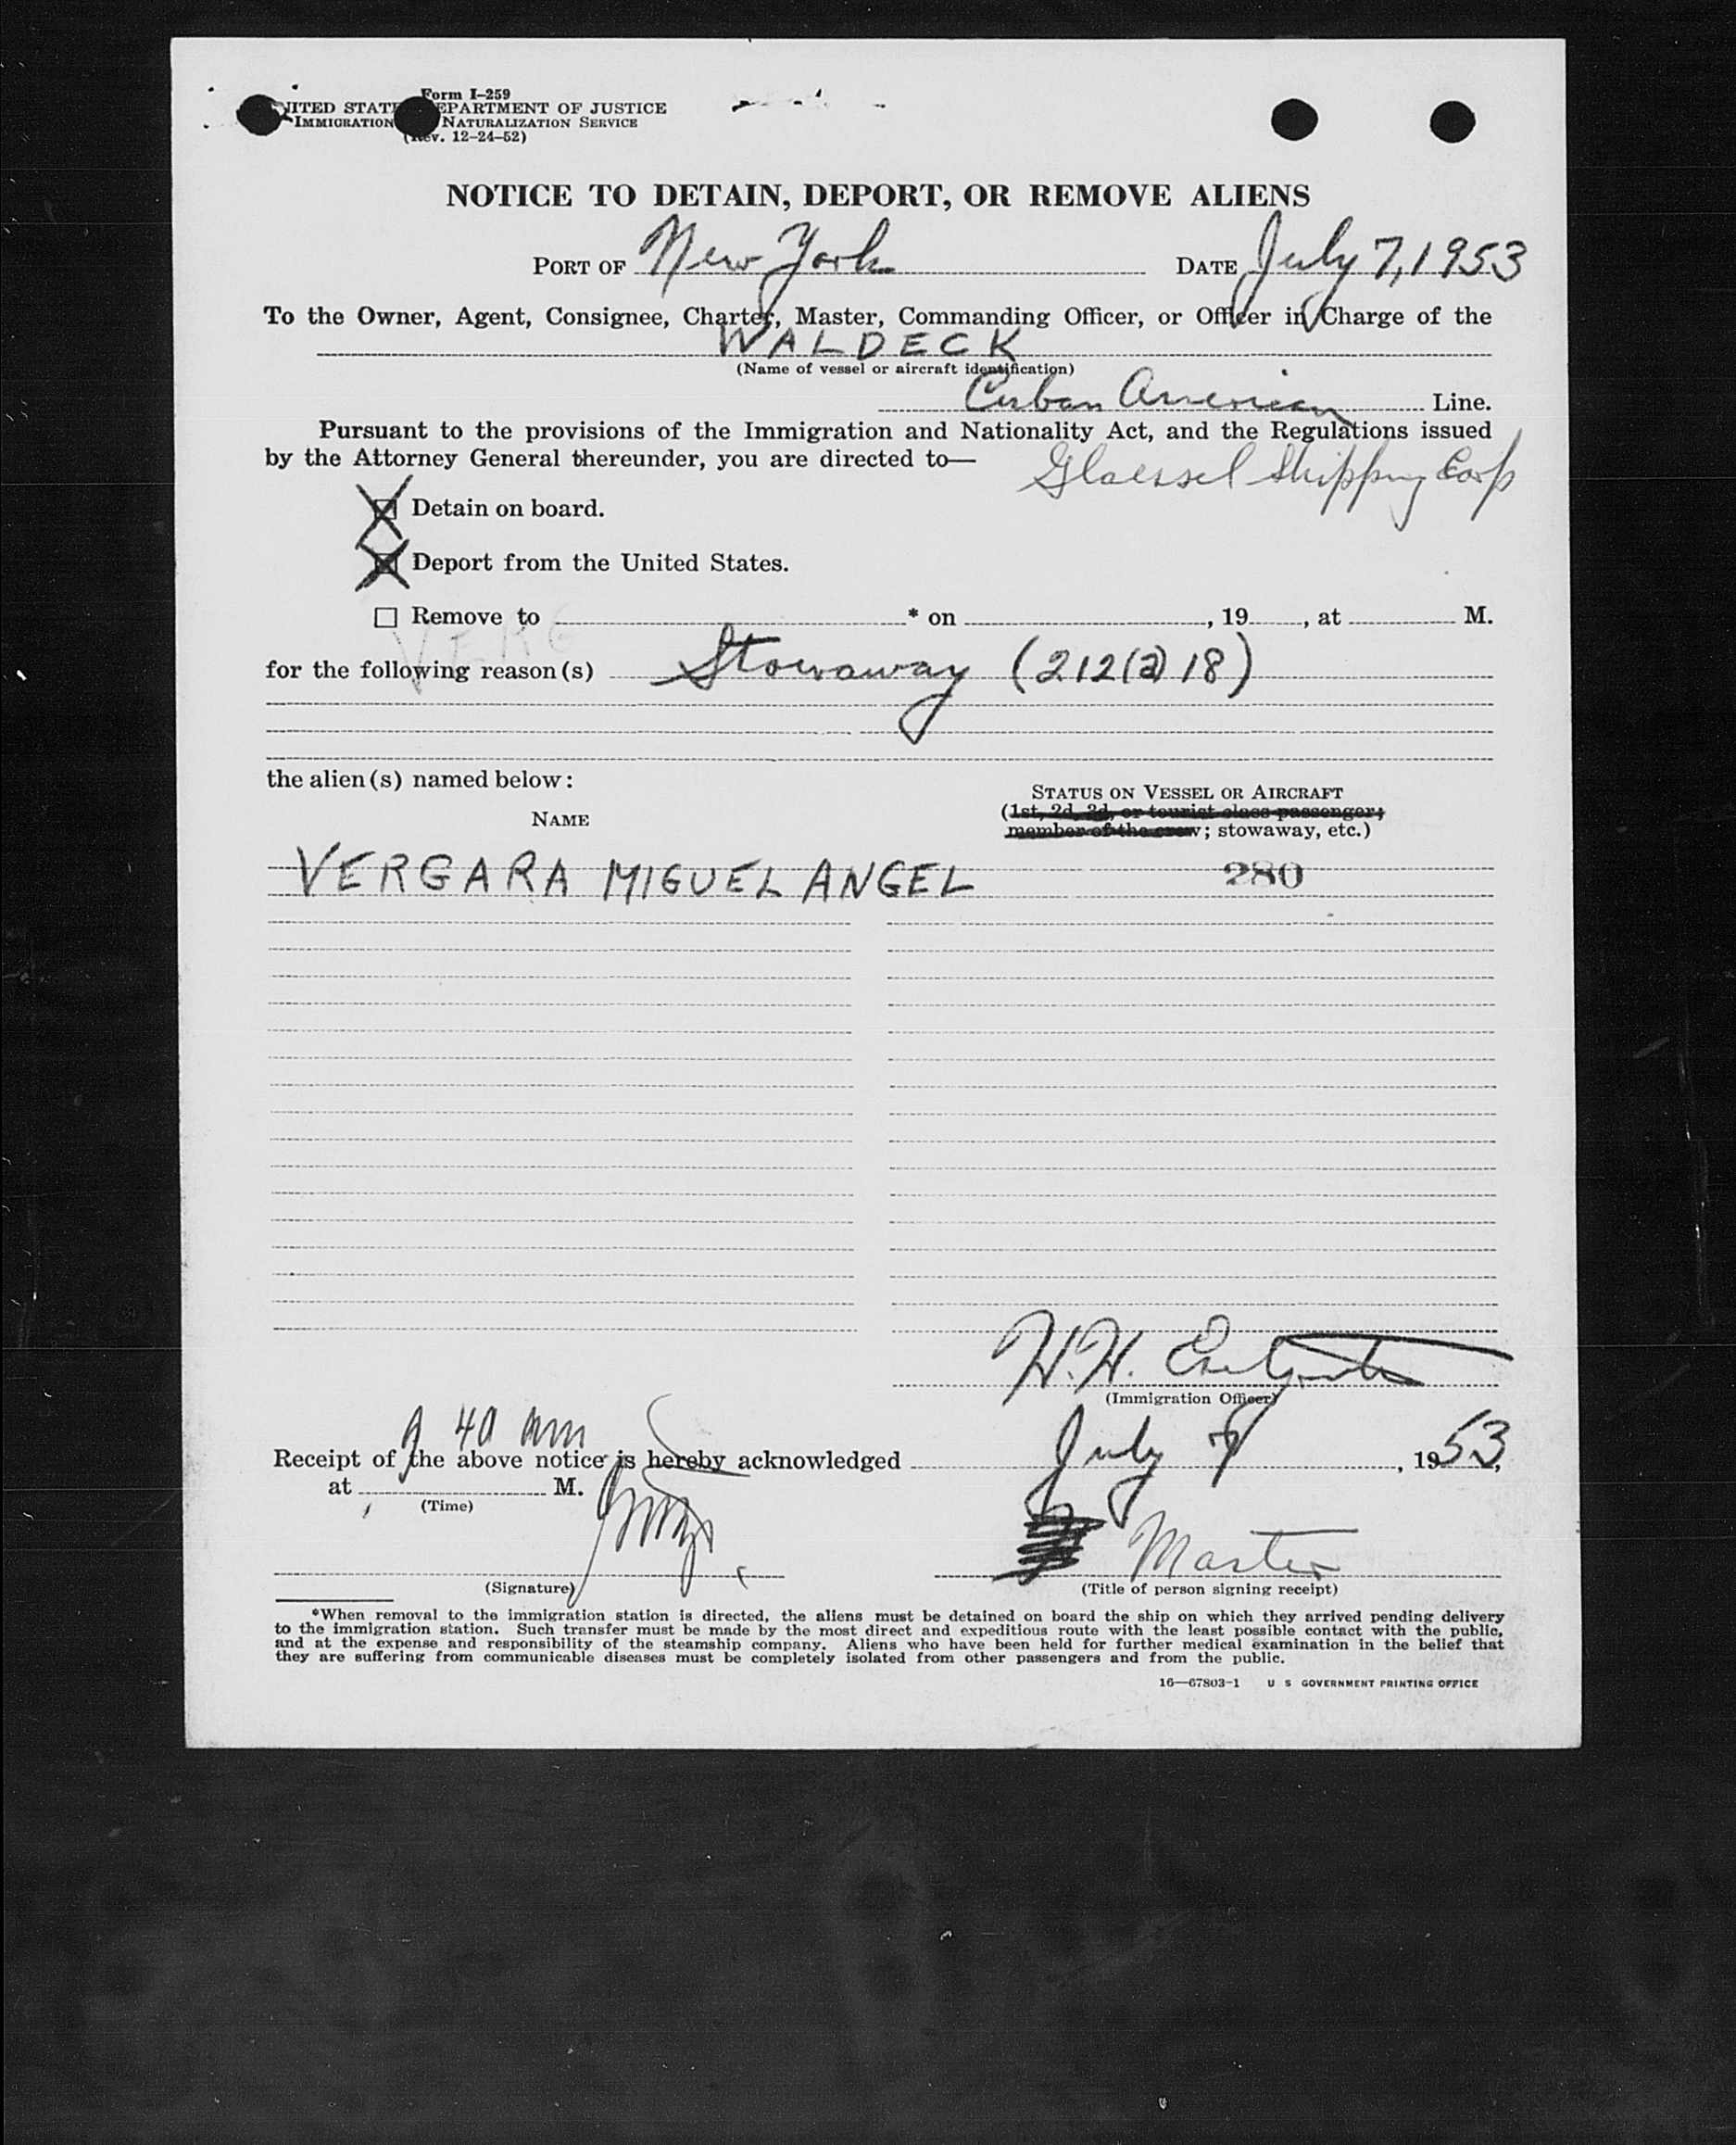 Form I-259
UNITED STATES DEPARTMENT OF JUSTICE
IMMIGRATION NATURALIZATION SERVICE
(Rev. 12-24-52)
NOTICE TO DETAIN, DEPORT, OR REMOVE ALIENS
PORT OF New York DATE July 7, 1953
To the Owner, Agent, Consignee, Charter, Master, Commanding Officer, or Officer in Charge of the
WALDECK
(Name of vessel or aircraft identification)
Cuban American Line.
Pursuant to the provisions of the Immigration and Nationality Act, and the Regulations issued
by the Attorney General thereunder, you are directed to— Glaessel Shipping Corp
Detain on board.
Deport from the United States.
Remove to * on , 19 , at M.
VERG
for the following reason(s) Stowaway (212(a) 18)
the alien(s) named below:
NAME
STATUS ON VESSEL OR AIRCRAFT
(1st, 2d, 3d, or tourist class passenger;
member of the crew; stowaway, etc.)
VERGARA MIGUEL ANGEL 280
H.H.
(Immigration Officer)
9 40 am
Receipt of the above notice is hereby acknowledged July 7, 1953,
at M.
(Time)
Master
(Signature) (Title of person signing receipt)
*When removal to the immigration station is directed, the aliens must be detained on board the ship on which they arrived pending delivery
to the immigration station. Such transfer must be made by the most direct and expeditious route with the least possible contact with the public,
and at the expense and responsibility of the steamship company. Aliens who have been held for further medical examination in the belief that
they are suffering from communicable diseases must be completely isolated from other passengers and from the public.
16—67803-1 U S GOVERNMENT PRINTING OFFICE